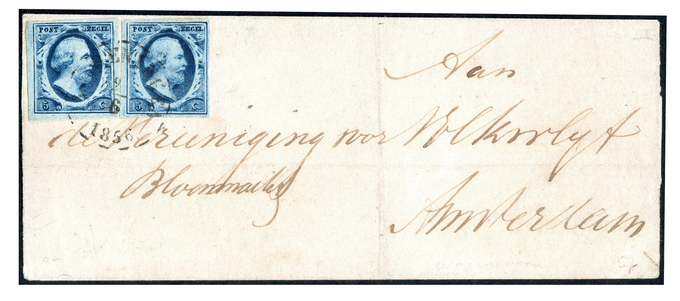 POST ZEGEL POST ZEGEL
5 C 5 C
9
6
1856
Aan
de Vereeniging voor Volksvlyt
Amsterdam